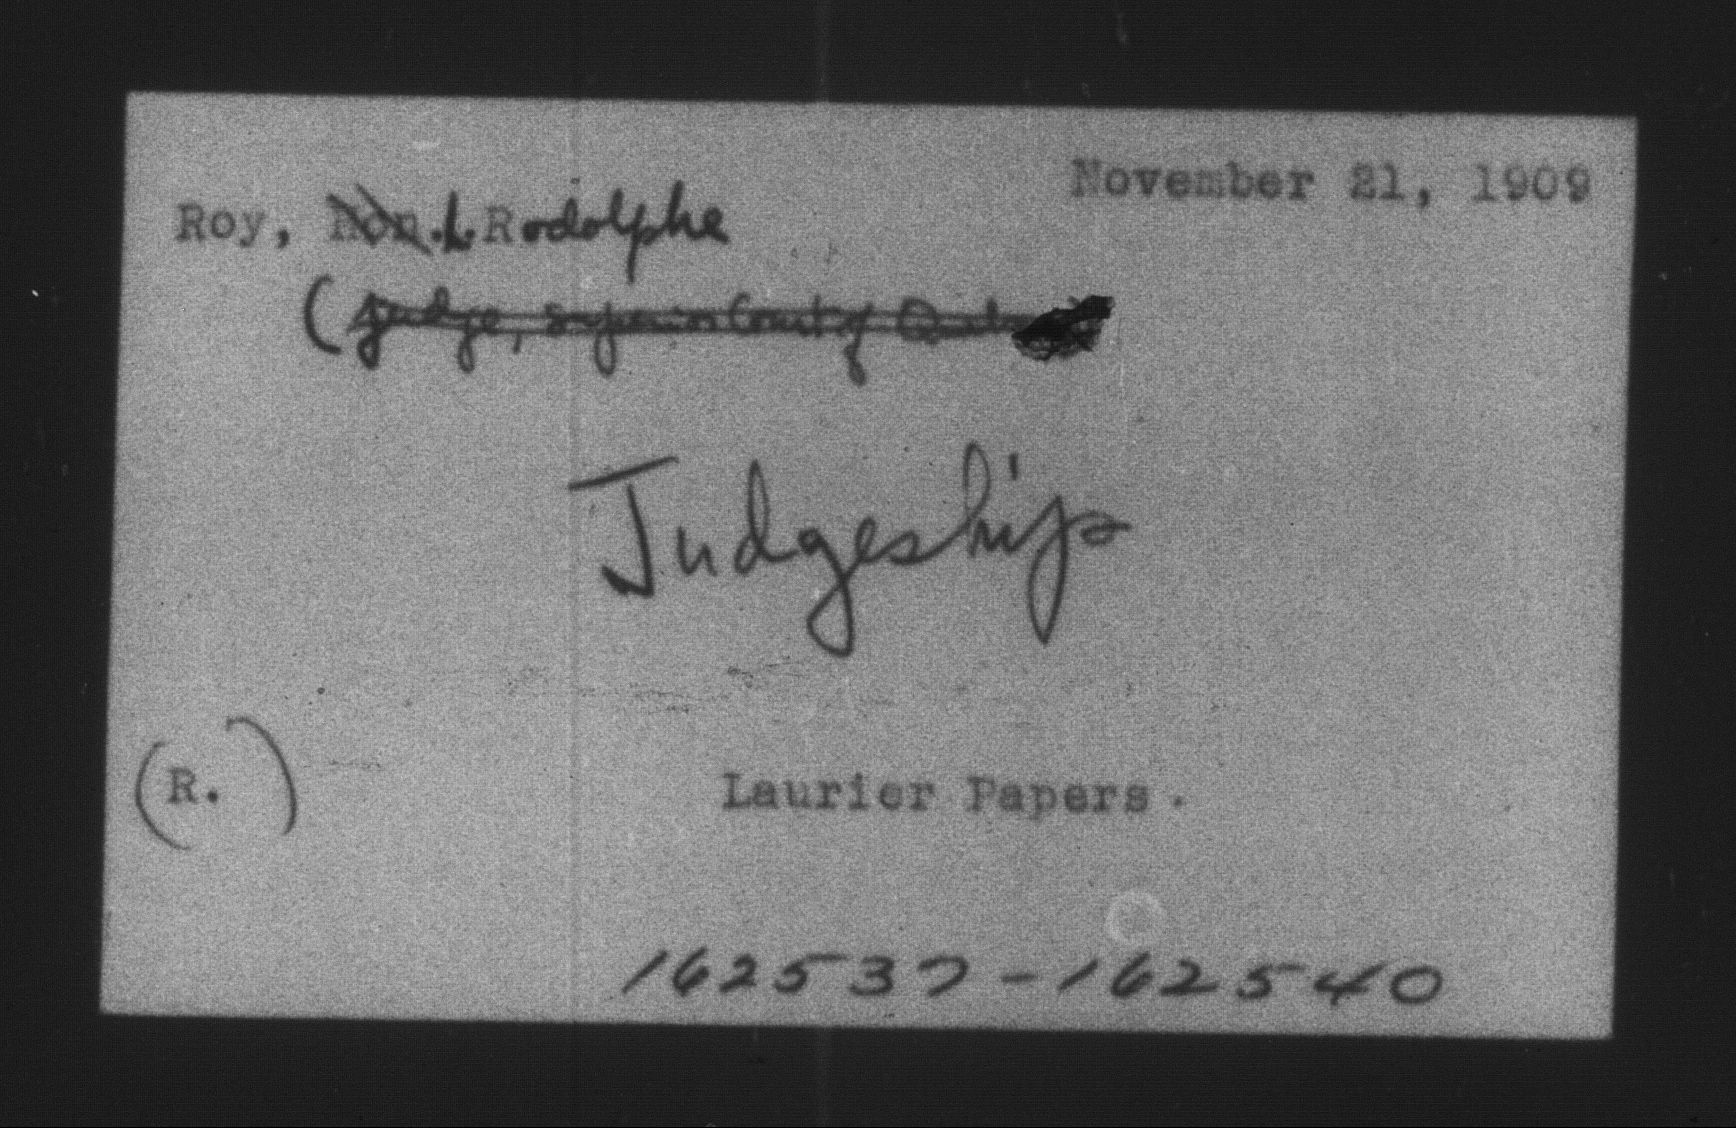 November 21, 1909
Roy, Hon. L. Rodolphe
(Judge, Superior Court of
Judgeship
(R.)
Laurier Papers.
162537-162540